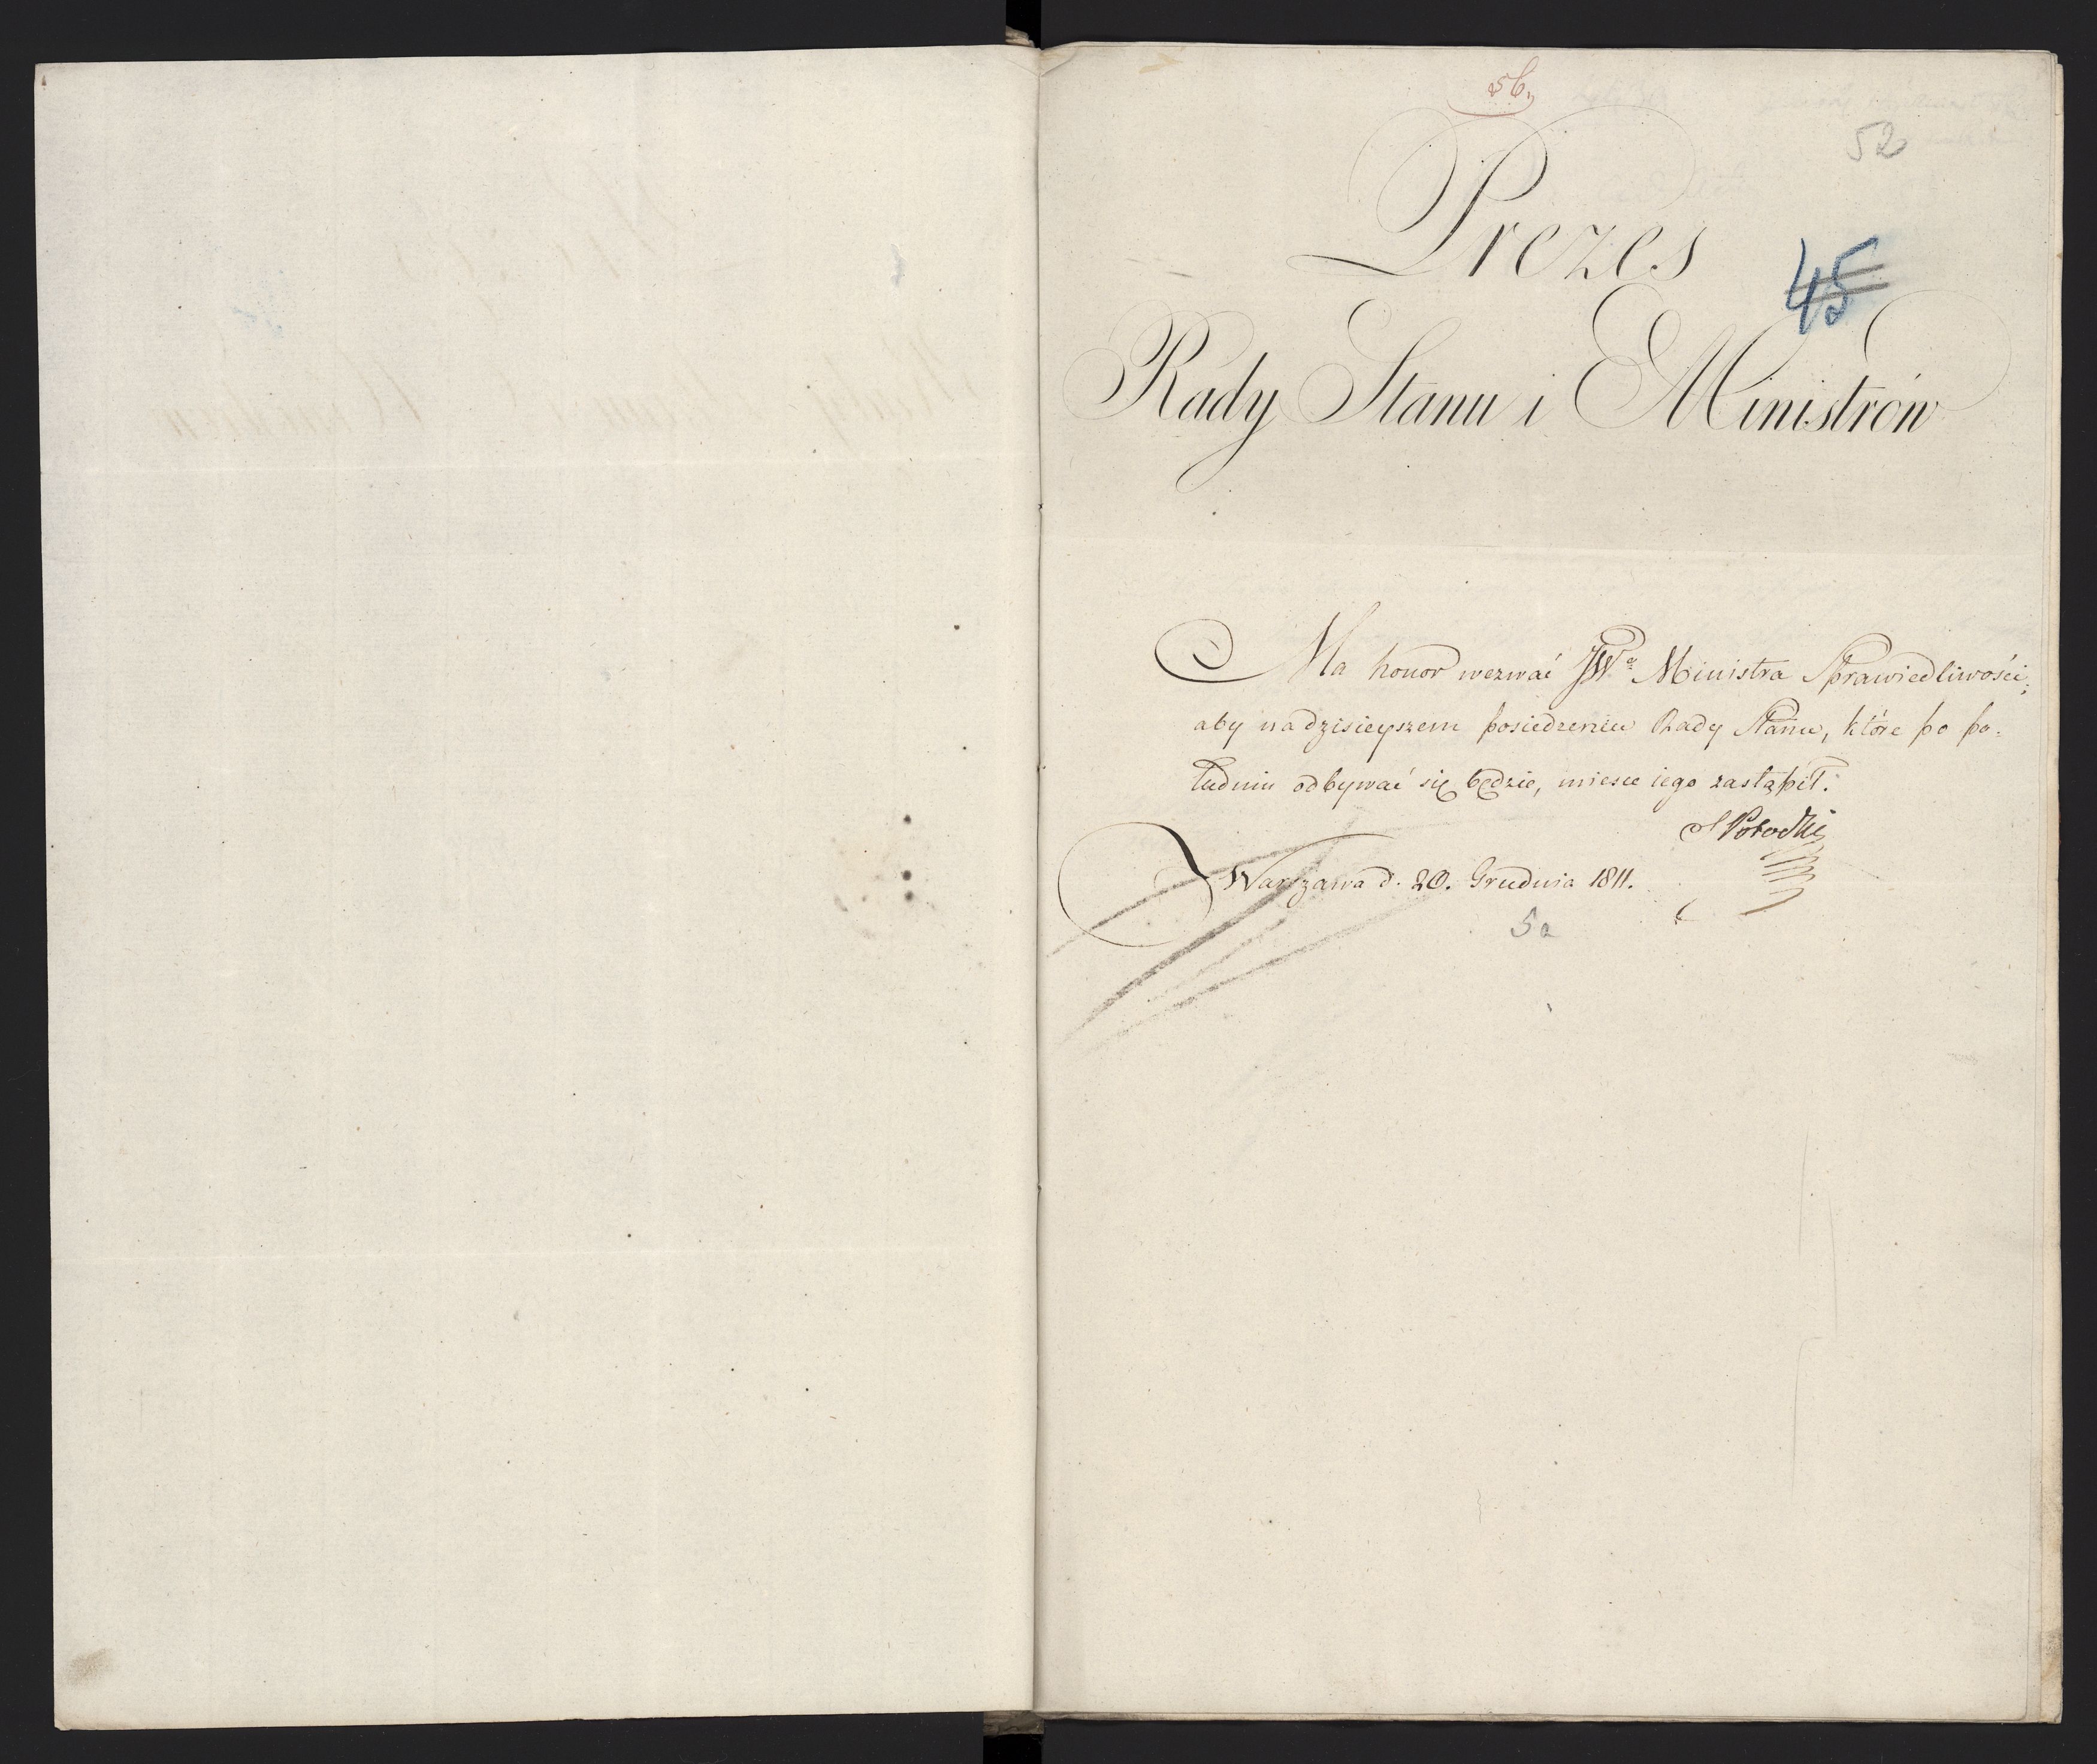 56.
52
Prezes
45
Rady Stanu i Ministrów
Ma honor wezwać JWgo Ministra Sprawiedliwości,
aby na dzisieyszem posiedzeniu Rady Stanu, które po po=
łudniu odbywać się będzie, miesce iego zastąpił.
S Potocki
Warszawa d. 20. Grudnia 1811.
5a